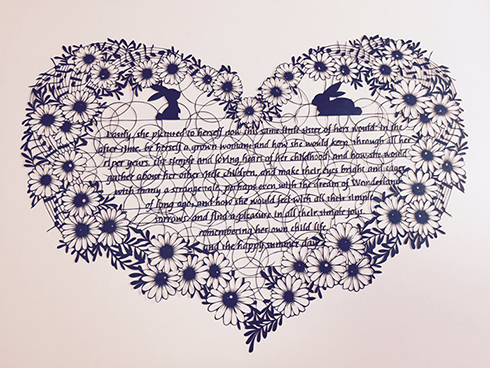 Lastly, she pictured to herself how this same little sister of hers would, in the
after-time, be herself a grown woman; and how she would keep, through all her
riper years, the simple and loving heart of her childhood; and how she would
gather about her other little children, and make their eyes bright and eager
with many a strange tale, perhaps even with the dream of Wonderland
of long ago; and how she would feel with all their simple
sorrows, and find a pleasure in all their simple joys,
remembering her own child life,
and the happy summer days